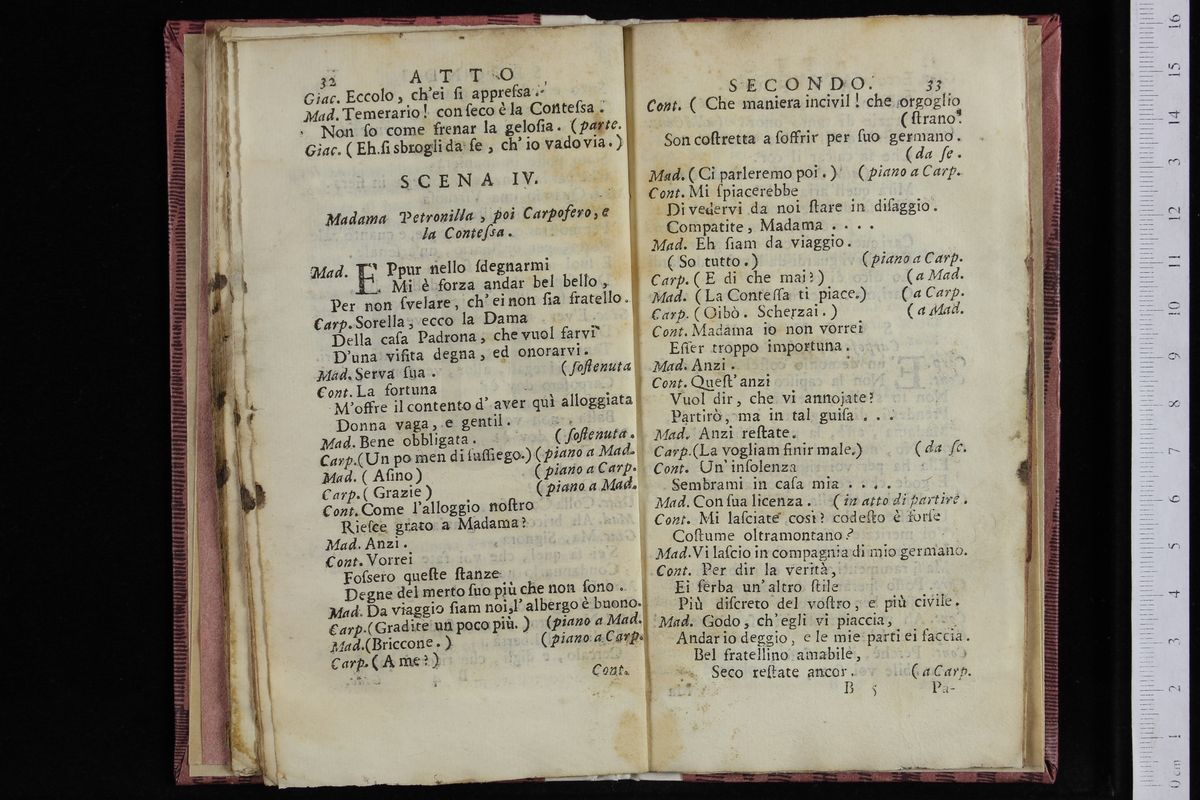 32 ATTO
Giac. Eccolo, ch'ei ſi appreſsa.
Mad. Temerario! con ſeco è la Conteſsa.
Non ſo come frenar la geloſia. (parte.
Giac. (Eh. ſi sbrogli da ſe, ch'io vado via.)
SCENA IV.
Madama Petronilla, poi Carpofero, e
la Conteſsa.
Mad. EPpur nello ſdegnarmi
Mi è forza andar bel bello,
Per non ſvelare, ch'ei non ſia fratello.
Carp. Sorella, ecco la Dama
Della caſa Padrona, che vuol farvi
D'una viſita degna, ed onorarvi.
Mad. Serva ſua. (ſoſtenuta
Cont. La fortuna
M'offre il contento d'aver quì alloggiata
Donna vaga, e gentil.
Mad. Bene obbligata. (ſoſtenuta.
Carp. (Un po men di ſuſſiego.) (piano a Mad.
Mad. (Aſino) (piano a Carp.
Carp. (Grazie) (piano a Mad.
Cont. Come l'alloggio noſtro
Rieſce grato a Madama?
Mad. Anzi.
Cont. Vorrei
Foſsero queſte ſtanze
Degne del merto ſuo più che non ſono.
Mad. Da viaggio ſiam noi, l'albergo è buono.
Carp. (Gradite un poco più.) (piano a Mad.
Mad. (Briccone.) (piano a Carp.
Carp. (A me?)
Cont.
SECONDO. 33
Cont. (Che maniera incivil! che orgoglio
(ſtrano!
Son coſtretta a ſoffrir per ſuo germano.
(da ſe.
Mad. (Ci parleremo poi.) (piano a Carp.
Cont. Mi ſpiacerebbe
Di vedervi da noi ſtare in diſaggio.
Compatite, Madama . . . .
Mad. Eh ſiam da viaggio.
(So tutto.) (piano a Carp.
Carp. (E di che mai?) (a Mad.
Mad. (La Conteſſa ti piace.) (a Carp.
Carp. (Oibò. Scherzai.) (a Mad.
Cont. Madama io non vorrei
Eſſer troppo importuna.
Mad. Anzi.
Cont. Queſt'anzi
Vuol dir, che vi annojate?
Partirò, ma in tal guiſa . . .
Mad. Anzi reſtate.
Carp. (La vogliam finir male.) (da ſe.
Cont. Un'inſolenza
Sembrami in caſa mia . . . .
Mad. Con ſua licenza. (in atto di partire.
Cont. Mi laſciate così? codeſto è forſe
Coſtume oltramontano?
Mad. Vi laſcio in compagnia di mio germano.
Cont. Per dir la verità,
Ei ſerba un'altro ſtile
Più diſcreto del voſtro, e più civile.
Mad. Godo, ch'egli vi piaccia,
Andar io deggio, e le mie parti ei faccia.
Bel fratellino amabile,
Seco reſtate ancor. (a Carp.
B 5 Pa-